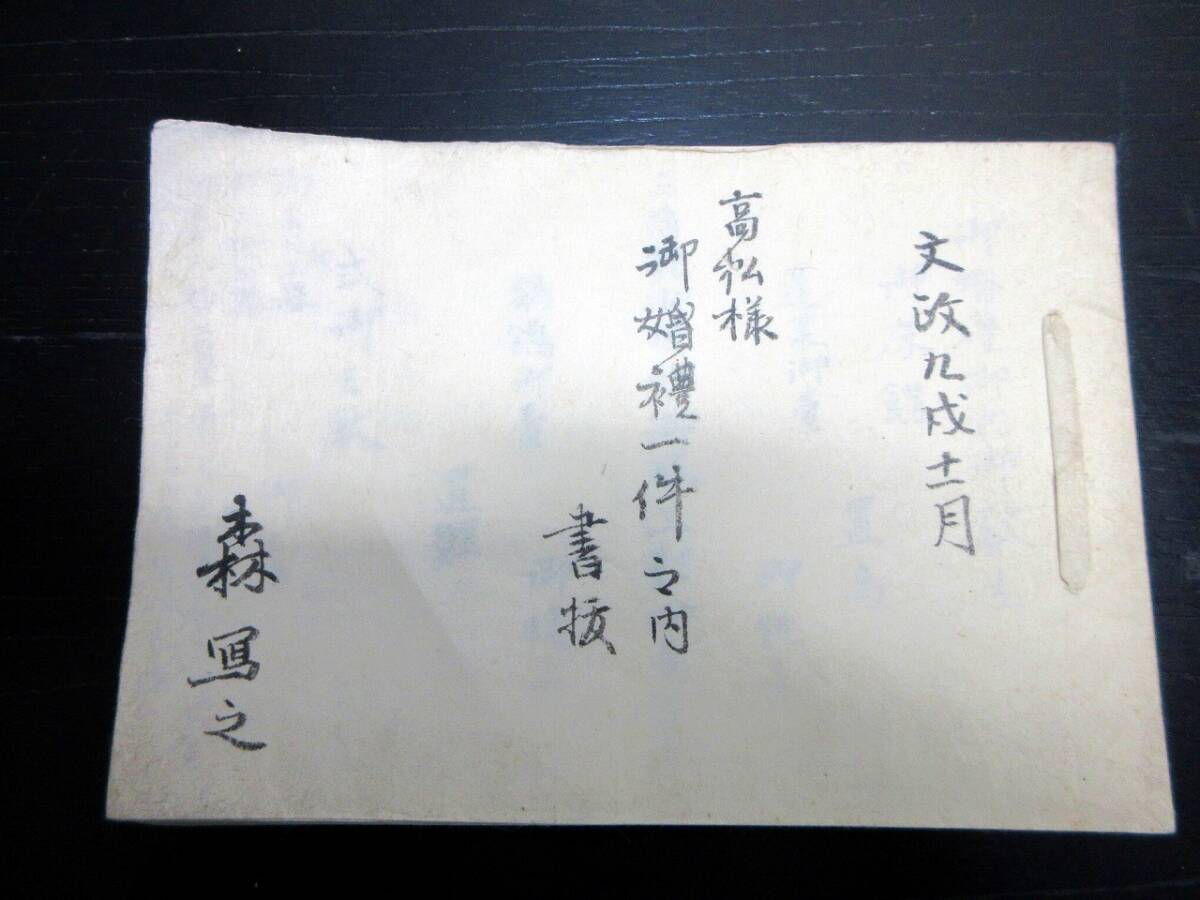 文政九戌十一月
高松様
御婚禮一件之内
書抜
森 冩之